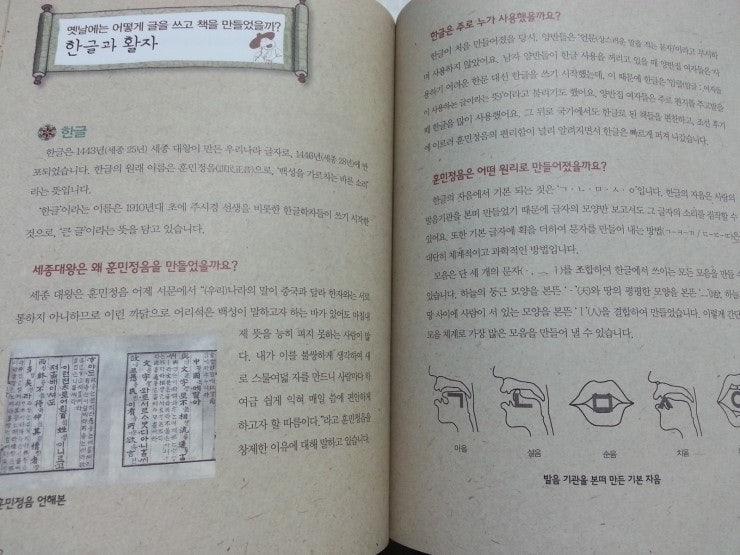 옛날에는 어떻게 글을 쓰고 책을 만들었을까?
한글과 활자
한글
한글은 1443년(세종 25년) 세종 대왕이 만든 우리나라 글자로, 1446년(세종 28년)에 반
포되었습니다. 한글의 원래 이름은 훈민정음(訓民正音)으로, '백성을 가르치는 바른 소리'
라는 뜻입니다.
'한글'이라는 이름은 1910년대 초에 주시경 선생을 비롯한 한글학자들이 쓰기 시작한
것으로, '큰 글'이라는 뜻을 담고 있습니다.
세종대왕은 왜 훈민정음을 만들었을까요?
세종 대왕은 훈민정음 어제 서문에서 "(우리)나라의 말이 중국과 달라 한자와는 서로
통하지 아니하므로 이런 까닭으로 어리석은 백성이 말하고자 하는 바가 있어도 마침내
제 뜻을 능히 펴지 못하는 사람이 많
다. 내가 이를 불쌍하게 생각하여 새
로 스물여덟 자를 만드니 사람마다 하
여금 쉽게 익혀 매일 씀에 편안하게
하고자 할 따름이다."라고 훈민정음을
창제한 이유에 대해 말하고 있습니다.
훈민정음 언해본
한글은 주로 누가 사용했을까요?
한글이 처음 만들어졌을 당시, 양반들은 '언문(상스러운 말을 적는 문자)'이라고 무시하
며 사용하지 않았어요. 남자 양반들이 한글 사용을 꺼리고 있을 때 양반집 여자들은 사
용하기 어려운 한문 대신 한글을 쓰기 시작했는데, 이 때문에 한글은 '암클(암글 : 여자들
이 사용하는 글이라는 뜻)'이라고 불리기도 했어요. 양반집 여자들은 주로 편지를 주고받을
때 한글을 많이 사용했어요. 그 뒤로 국가에서도 한글로 된 책들을 편찬하고, 조선 후기
에 이르러 훈민정음의 편리함이 널리 알려지면서 한글은 빠르게 퍼져 나갔습니다.
훈민정음은 어떤 원리로 만들어졌을까요?
한글의 자음에서 기본 되는 것은 'ㄱ · ㄴ · ㅁ · ㅅ · ㅇ'입니다. 한글의 자음은 사람의
발음기관을 본떠 만들었기 때문에 글자의 모양만 보고서도 그 글자의 소리를 짐작할 수
있어요. 또한 기본 글자에 획을 더하여 문자를 만들어 내는 방법(ㄱ-ㅋ-ㄲ / ㄷ-ㅌ-ㄸ)은
대단히 체계적이고 과학적인 방법입니다.
모음은 단 세 개의 문자(ㆍ, ㅡ, ㅣ)를 조합하여 한글에서 쓰이는 모든 모음을 만들 수
있습니다. 하늘의 둥근 모양을 본뜬 'ㆍ'(天)와 땅의 평평한 모양을 본뜬 'ㅡ'(地), 하늘과
땅 사이에 사람이 서 있는 모양을 본뜬 'ㅣ'(人)을 결합하여 만들었습니다. 이렇게 간단한
모음 체계로 가장 많은 모음을 만들어 낼 수 있습니다.
ㄱ ㄴ ㅁ ㅅ
아음 설음 순음 치음
발음 기관을 본떠 만든 기본 자음